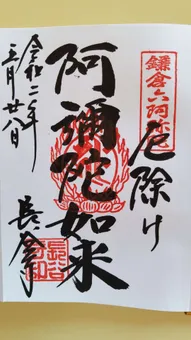 鎌倉六阿弥陀
厄除け
阿彌陀如来
長谷寺
令和二年
三月廿八日